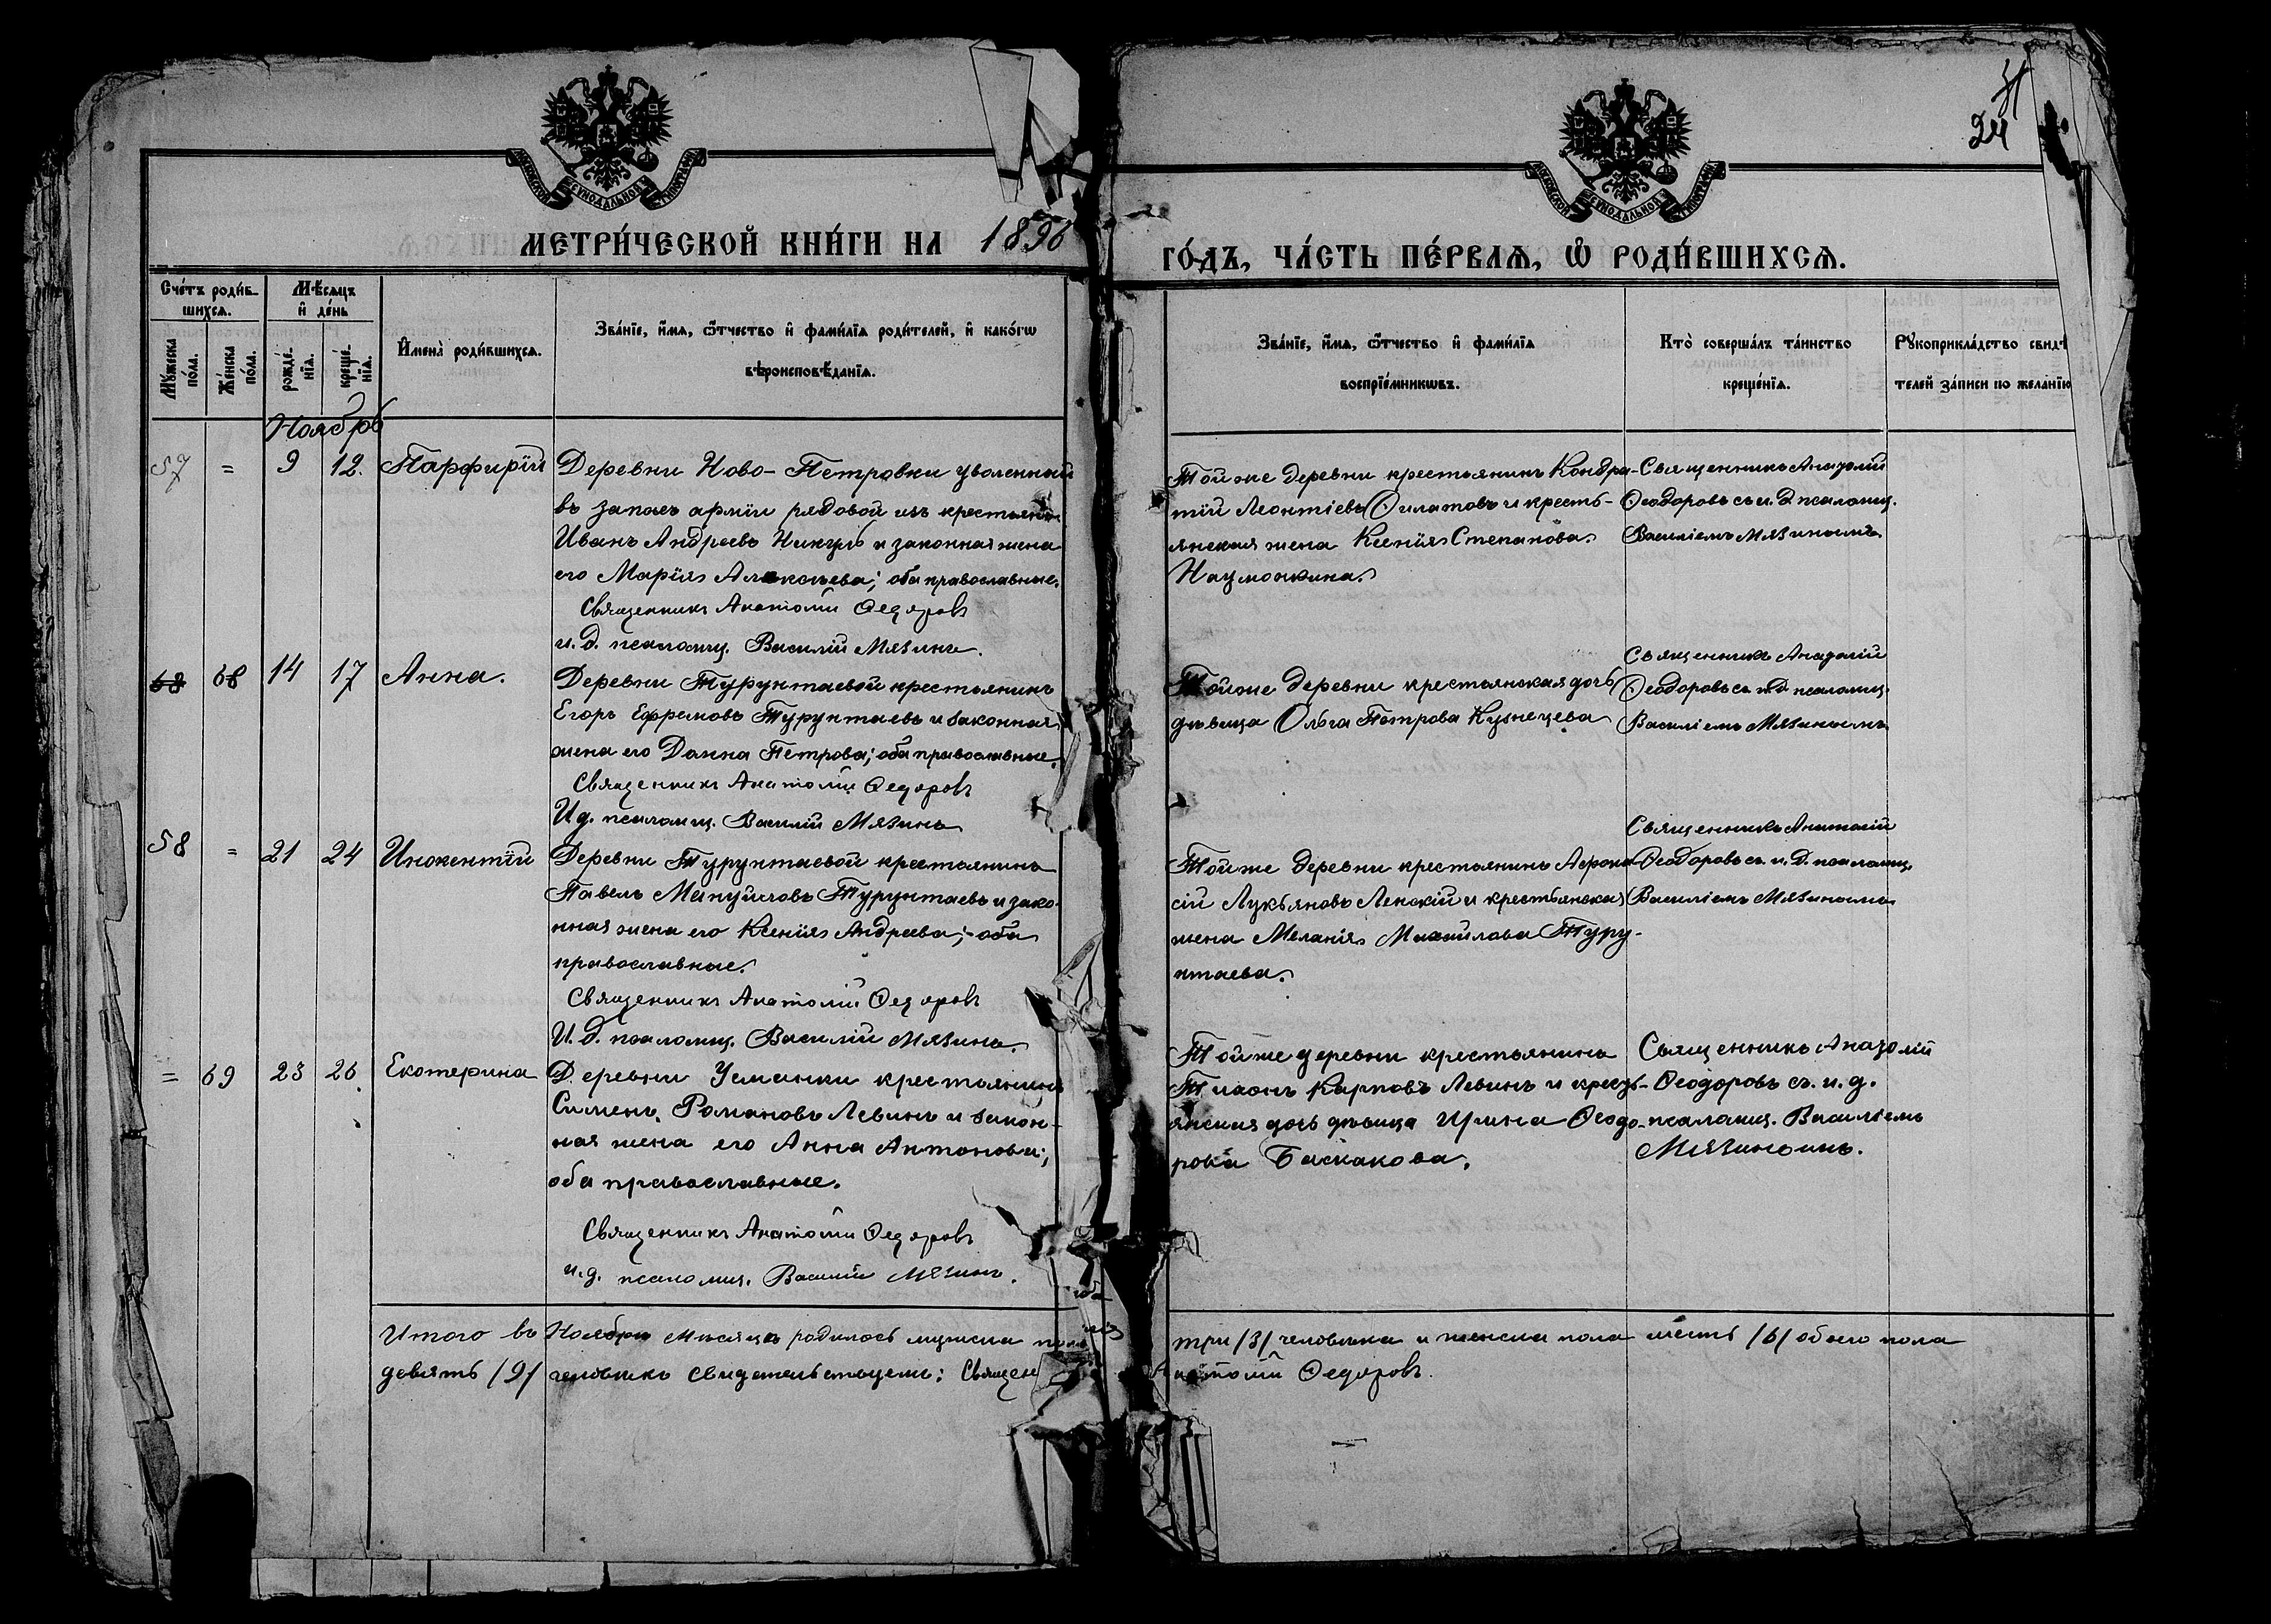 31
24
МОСКОВСКОЙ СѴНОДАЛЬНОЙ ТИПОГРАФІИ
МОСКОВСКОЙ СѴНОДАЛЬНОЙ ТИПОГРАФІИ
МЕТРИ́ЧЕСКОЙ КНИ́ГИ НА 1896
ГО́ДЪ, ЧА́СТЬ ПЕ́РВАѦ, Ѡ҆ РОДИ́ВШИХСѦ.
Сче́тъ роди́в-
шихсѧ.
Мѣ́сѧцъ
и҆ де́нь
Мꙋ́жеска по́ла.
Же́нска по́ла.
рожде́-нїѧ.
креще́-нїѧ.
И҆мена̀ роди́вшихсѧ.
Зва́нїе, и҆́мѧ, ѻ҆́тчество и҆ фами́лїѧ роди́телей, и҆ како́гѡ
вѣроисповѣ́данїѧ.
Зва́нїе, и҆́мѧ, ѻ҆́тчество и҆ фами́лїѧ
воспрїе́мникѡвъ.
Кто̀ соверша́лъ та́инство
креще́нїѧ.
Рꙋкоприкла́дство свидѣ
телей за́писи по жела́нїю
Ноябрь
57 = 9 12. Парфирій Деревни Ново-Петровки уволенный
въ запасъ арміи рядовой изъ крестьянъ
Иванъ Андреевъ и законная жена
его Марія Алексѣева; оба православные.
Священникъ Анатолій Ѳедоровъ
и. д. псаломщ. Василій Мязинъ.
Той же деревни крестьянинъ Кондра-
тій Леонтіевъ Филатовъ и кресть-
янская жена Ксенія Степанова
Наумочкина.
Священникъ Анатолій
Ѳеодоровъ съ и. д. псаломщ.
Василіемъ Мязинымъ
68 68 14 17 Анна. Деревни Турунтаевой крестьянинъ
Егоръ Ефремовъ Турунтаевъ и законная
жена его Домна Петрова; оба православные.
Священникъ Анатолій Ѳедоровъ
И д. псаломщ. Василій Мязинъ
Той же деревни крестьянская дочь
дѣвица Ольга Петрова Кузнецева
Священникъ Анатолій
Ѳеодоровъ съ и. д. псаломщ.
Василіемъ Мязинымъ
58 = 21 24 Инокентій Деревни Турунтаевой крестьянинъ
Павелъ Мануйловъ Турунтаевъ и зако-
нная жена его Ксенія Андреева; оба
православные.
Священникъ Анатолій Ѳедоровъ
И. д. псаломщ. Василій Мязинъ.
Той же деревни крестьянинъ Аѳона-
сій Лукьяновъ Ленскій и крестьянская
жена Меланія Михайлова Туру-
нтаева.
Священникъ Анатолій
Ѳеодоровъ съ и. д. псаломщ.
Василіемъ Мязинымъ
= 69 23 26. Екотерина Деревни Усманки крестьянинъ
Сименъ Романовъ Левинъ и закон-
ная жена его Анна Антонова;
оба православные.
Священникъ Анатолій Ѳедоровъ
и. д. псаломщ. Василій Мязинъ.
Той же деревни крестьянинъ
Тихонъ Карповъ Левинъ и кресть-
янская дочь дѣвица Ирина Ѳеодо-
рова Баскакова.
Священникъ Анатолій
Ѳеодоровъ съ. и. д.
псаломщ. Василіемъ
Мязинымъ.
Итого въ Ноябрѣ мѣсяцѣ родилось мужска пола три /3/ человѣка и женска пола шесть /6/ обоего пола
девять /9/ человѣкъ свидетельствуемъ: Священ Анатолій Ѳедоровъ.